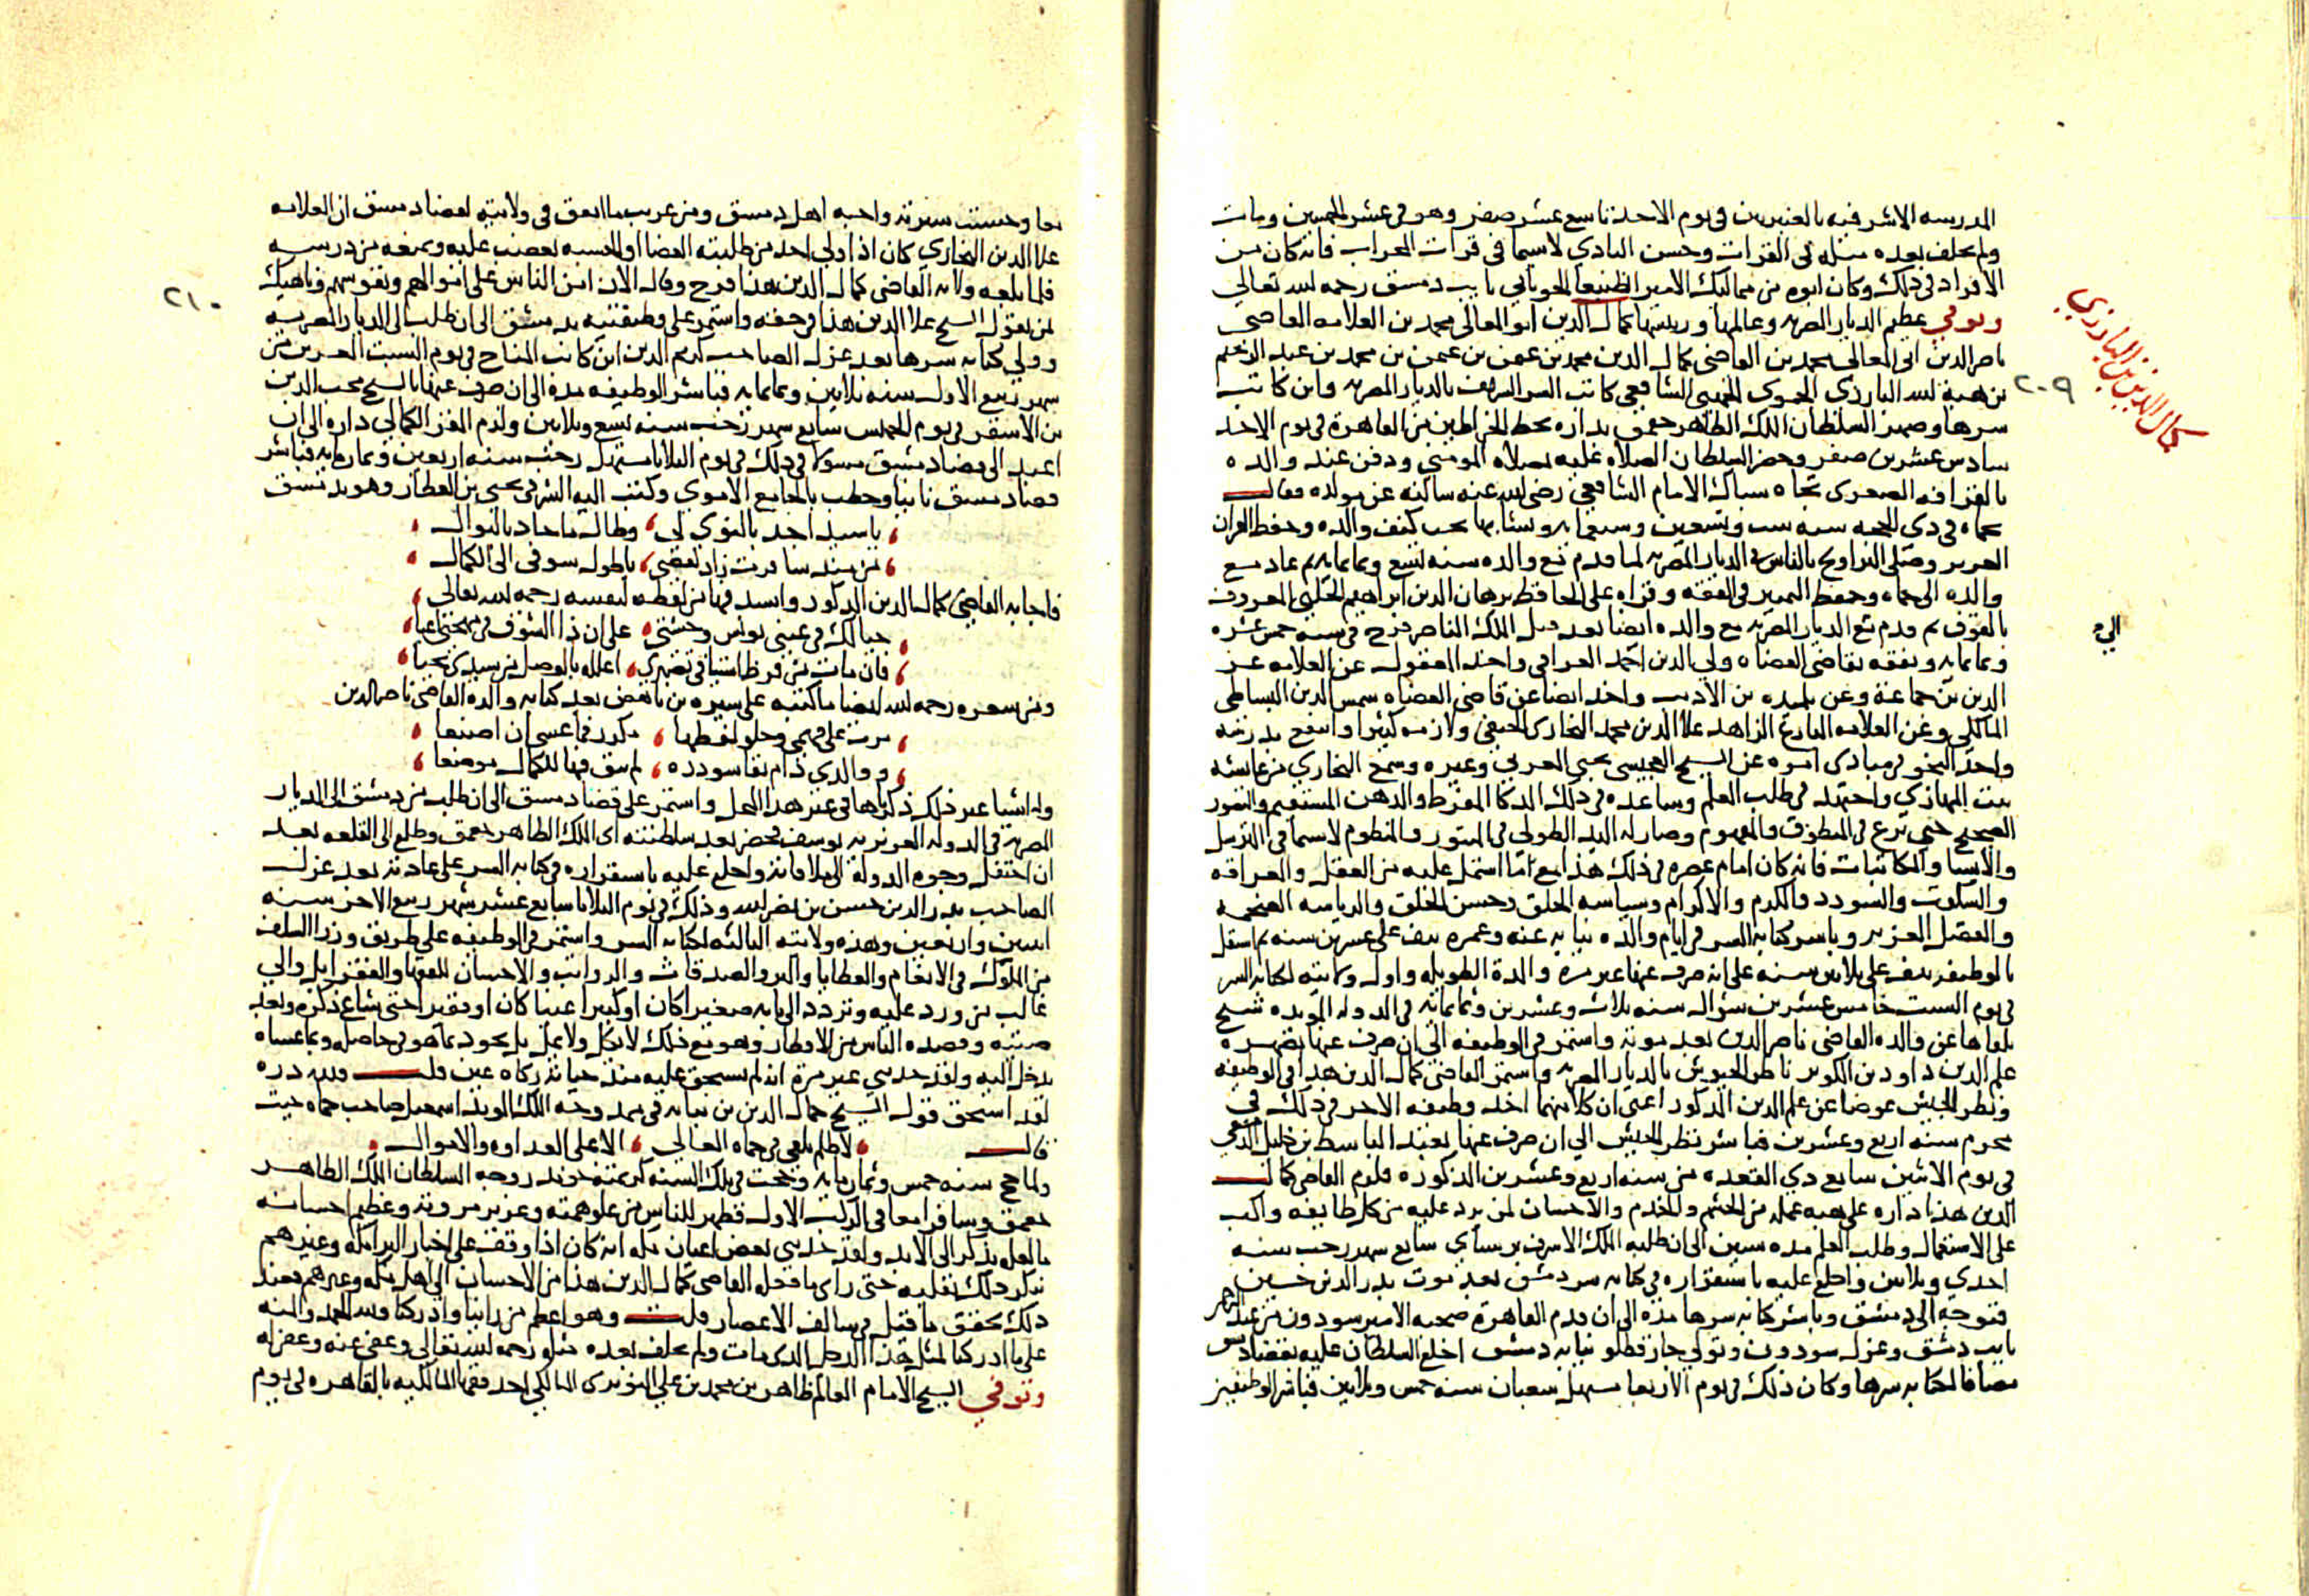 المدرسه الاشرفيه بالعنبريين في يوم الاحد تاسع عشر صفر وهو في عشر الخمسين ومات
ولم يخلف بعده مثله في القرات وحسن التادي لاسيما في قرات المحراب فانه كان من
الافراد في ذلك وكان ابوه من مماليك الامير الطنبغا الجوباني نايب دمشق رحمه الله تعالى
وتوفي عظيم الديار المصريه وعالمها ورييسها كمال الدين ابو المعالى محمد بن العلامه القاضي
ناصر الدين ابى المعالى محمد بن القاضى كمال الدين محمد بن عثمن بن محمد بن عبد الرحيم
بن هبة الله البارزى الحموى الجهنى الشافعي كاتب السر الشريف بالديار المصريه وابن كاتب
سرها وصهر السلطان الملك الظاهر جقمق بداره بخط الخراطين من القاهرة في يوم الاحد
سادس عشرين صفر وحضر السلطان الصلاه عليه بمصلاه المومنى ودفن عند والده
بالقرافه الصغرى تجاه شباك الامام الشافعي رضى الله عنه سالته عن مولده فقال
بحماه في ذى الحجه سنه ست وتسعين وسبعمايه ونشا بها تحت كنف والده وحفظ القران
العزيز وصلى التراويح بالناس في الديار المصريه لما قدم مع والده سنه تسع وثمانمايه ثم عاد مع
والده الى حماه وحفظ التمييز في الفقه وقراه على الحافظ برهان الدين ابراهيم الحلبي المعروف
بالقوف ثم قدم مع الديار المصريه مع والده ايضا بعد قتل الملك الناصر فرج في سنه خمس عشره
وثمانمايه وتفقه بقاضى القضاه ولى الدين احمد العراقى واخذ المعقول عن العلامه عز
الدين بن جماعة وعن تلميذه بن الاديب واخذ ايضا عن قاضى القضاه شمس الدين البساطى
المالكى وعن العلامه البارع الزاهد علا الدين محمد البخارى الحنفي ولازمه كثيرا وانتفع بدرسه
واخذ النحو في مبادى امره عن الشيخ العجيسى يحيى المغربي وغيره وسمع البخاري من عايشه
بنت عبد الهادي واجتهد في طلب العلم وساعده في ذلك الذكا المفرط والذهن المستقيم والتصور
الصحيح حتى برع في المنطوق والمفهوم وصار له اليد الطولى في المنثور والمنظوم لاسيما في الترسل
والانشا والمكاتبات فانه كان امام عصره في ذلك هذا مع ما اشتمل عليه من العقل والعراقه
والسكوت والسودد والكرم والاكرام وسياسه الخلق وحسن الخلق والرياسه الضخمه
والفضل الغزير وباشر كتابه السر في ايام والده نيابه عنه وعمره نيف على عشرين سنه ثم استقل
بالوظيفه نيف على ثلاثين سنه على انه صرف عنها غير مرة والمدة الطويله واول ولايته لكتابه السر
في يوم السبت خامس عشرين شوال سنه ثلاث وعشرين وثمانمايه في الدوله المويده شيخ
تلقاها عن والده القاضى ناصر الدين بعد موته واستمر في الوظيفه الى ان صرف عنها بصهره
علم الدين داود بن الكويز ناظر الجيوش بالديار المصريه واستقر القاضى كمال الدين هذا في الوظيفه
ونظر الجيش عوضا عن علم الدين المذكور اعنى ان كلا منهما اخذ وظيفه الاخر في ذلك في
محرم سنه اربع وعشرين فباشر نظر الجيش الى ان صرف عنها بعبد الباسط بن خليل الدمشقي
في يوم الاثنين سابع ذي القعده من سنه اربع وعشرين المذكوره فلزم القاضى كمال
الدين هذا داره على هيه عمله من الحشم والخدم والاحسان لمن يرد عليه من كل طايفه واكب
على الاشتغال وطلب العلم مده سنين الى ان طلبه الملك الاشرف برسباي سابع شهر رجب سنه
احدي وثلاثين واخلع عليه باستقراره في كتابه سر دمشق بعد موت بدر الدين حسين
فتوجه الى دمشق وباشر كتابه سرها مدة الى ان قدم القاهرة صحبه الامير سودون من عبد الرحمن
نايب دمشق وعزل سودون وتولي جار قطلو نيابه دمشق اخلع السلطان عليه بقضا دمشق
مضافا لكتابه سرها وكان ذلك في يوم الاربعا مستهل شعبان سنه خمس وثلاثين فباشر الوظيفتين
كمال الدين بن البارزي
٢٠٩
الي
معا وحسنت سيرته واحبه اهل دمشق ومن غريب ما اتفق في ولايته لقضا دمشق ان العلامه
علا الدين البخاري كان اذا ولي احد من طلبته القضا او الحسبه يغضب عليه ويمنعه من درسه
فلما بلغه ولايه القاضى كمال الدين هذا فرح وقال الان امن الناس على اموالهم ونفوسهم وناهيك
لمن يقول الشيخ علا الدين هذا في حقه واستمر على وظيفتيه بدمشق الى ان طلب الى الديار المصريه
وولي كتابه سرها بعد عزل الصاحب كريم الدين ابن كاتب المناخ في يوم السبت العشرين من
شهر ربيع الاول سنه ثلاثين وثمانمايه فباشر الوظيفه مدة الى ان صرف عنها بالشيخ محب الدين
بن الاشقر في يوم الخميس سابع شهر رجب سنه تسع وثلاثين ولزم المقر الكمالي داره الى ان
اعيد الى قضا دمشق مسولا في ذلك في يوم الثلاثا مستهل رجب سنه اربعين وثمانمايه فباشر
قضا دمشق ثانيا وخطب بالجامع الاموي وكتب اليه الشرفى يحيى بن العطار وهو بدمشق
، يا سيد اجد بالنوي لى ، وطال ما جاد بالنوال ،
، من منذ سافرت زاد نقصي ، يا طول شوقى الى الكمال ،
فاجابه القاضى كمال الدين المذكور وانشد فيها من لفظه لنفسه رحمه الله تعالى
، خيالك في عيني يونس وحشتي ، على ان ذا الشوق في مهجتي اعيا ،
، فان مات من فرط اشتياقي تصبري ، اعلله بالوصل من سيدي يحيا ،
ومن شعره رحمه الله ايضا ما كتبه على سيره بن ناهض بعد كتابه والده القاضى ناصر الدين
، مرت على فهمي وحلو لفظها ، مكرر فما عسى ان اصنعا ،
، ووالدي دام بقا سودده ، لم يبق فيها للكمال موضعا ،
وله اشيا غير ذلك ذكرناها في غير هذا المحل واستمر على قضا دمشق الى ان طلب من دمشق الى الديار
المصريه في الدوله العزيزيه يوسف فحضر بعد سلطنته اى الملك الظاهر جقمق وطلع الى القلعه بعد
ان احتفل وجوه الدولة الى ملاقاته واخلع عليه باستقراره في كتابه السر على عادته بعد عزل
الصاحب بدر الدين حسن بن نصر الله وذلك في يوم الثلاثا سابع عشر شهر ربيع الاخر سنه
اثنين واربعين وهذه ولايته الثالثه لكتابه السر واستمر في الوظيفه على طريق وزرا السلف
من الملوك في الانعام والعطايا والبر والصدقات والرواتب والاحسان للفقها والفقرا بل والي
غالب من ورد عليه وتردد الى بابه صغيرا كان او كبيرا غنيا كان او فقيرا حتى شاع ذكره وبعد
صيته وقصده الناس من الاقطار وهو مع ذلك لا يكل ولا يمل بل يجود بما هو في حاصله وبما عساه
يدخل اليه ولقد حدثني غير مرة انه لم يستحق عليه منذ حياته زكاه عين قلت ولله دره
لقد استحق قول الشيخ جمال الدين بن نباته في ممدوحه الملك المويد اسمعيل صاحب حماه حيث
قال ، لا ظلم يلفى في حماه العالي ، الا على العداوه والاموال ،
ولما حج سنه خمس وثمانمايه وحجت في تلك السنه كريمته خوند زوجه السلطان الملك الظاهر
جقمق وسافرا معا في الركب الاول فظهر للناس من علو همته وغزير مروته وعظيم احسانه
ما لعله يذكر الى الابد ولقد حدثني بعض اعيان مكه انه كان اذا وقف على اخبار البرامكه وغيرهم
ينكر ذلك بقلبه حتى راى ما فعله القاضى كمال الدين هذا من الاحسان الى اهل مكه وغيرهم فعند
ذلك تحقق ما قيل في سالف الاعصار قلت وهو اعظم من راينا وادركنا ولله الحمد والمنه
على ما ادركنا لمثل هذا الرجل الذى مات ولم يخلف بعده مثله رحمه الله تعالى وعفى عنه وغفر له
وتوفي الشيخ الامام العالم طاهر بن محمد بن على النويرى المالكي احد فقها المالكيه بالقاهره في يوم
٢١٠